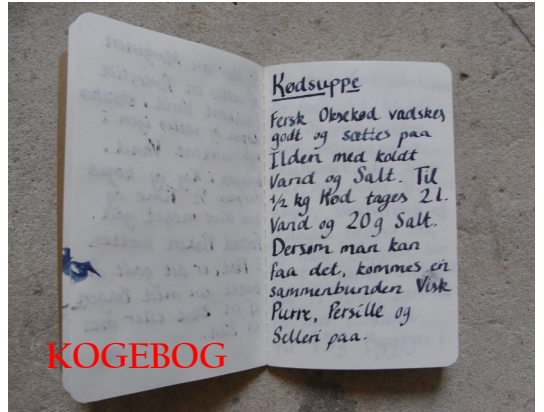 Kødsuppe
Fersk Oksekød vadskes
godt og sættes paa
Ilden med koldt
Vand og Salt. Til
½ kg Kød tages 2 l.
Vand og 20 g Salt.
Dersom man kan
faa det, kommes en
sammenbunden Visk
Purre, Persille og
Selleri paa.
KOGEBOG